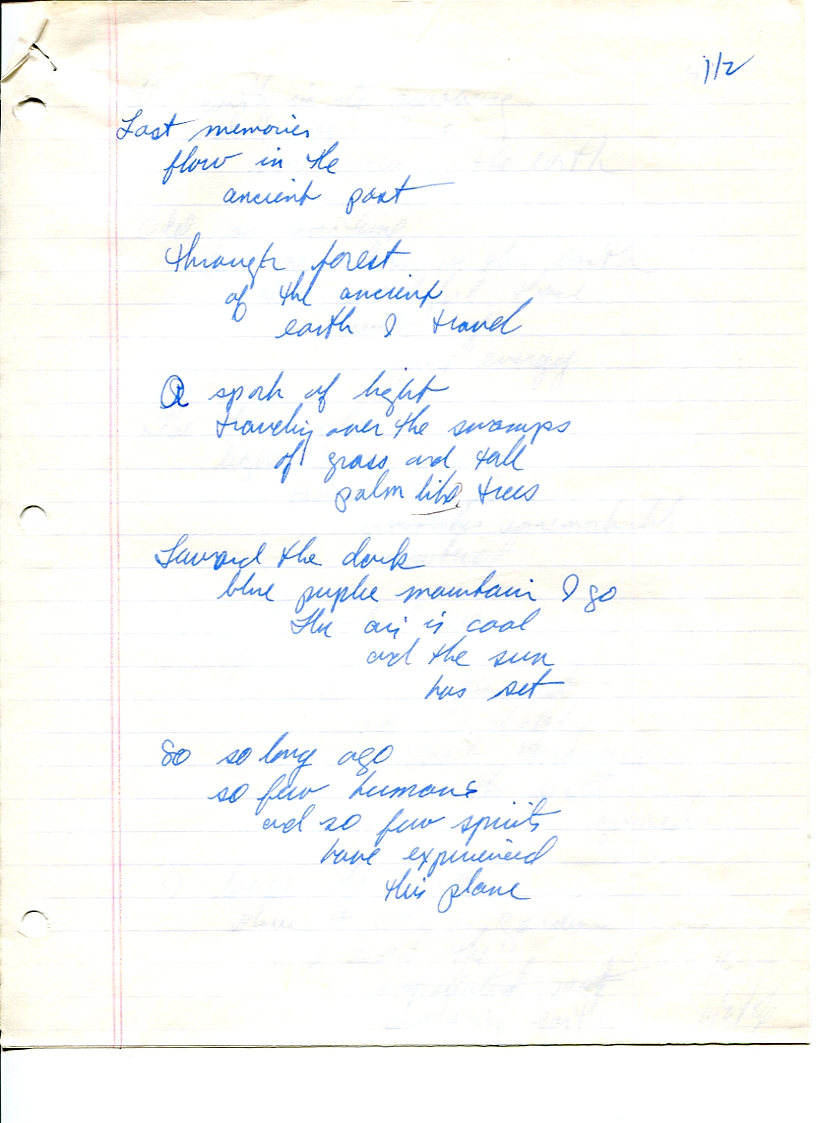 1/2
Lost memories
flow in the
ancient past
through forest
of the ancient
earth I travel
A spark of light
traveling over the swamps
of grass and tall
palm like trees
Toward the dark
blue puplee mountain I go
The air is cool
and the sun
has set
So so long ago
so few humans
and so few spirits
have experienced
this plane